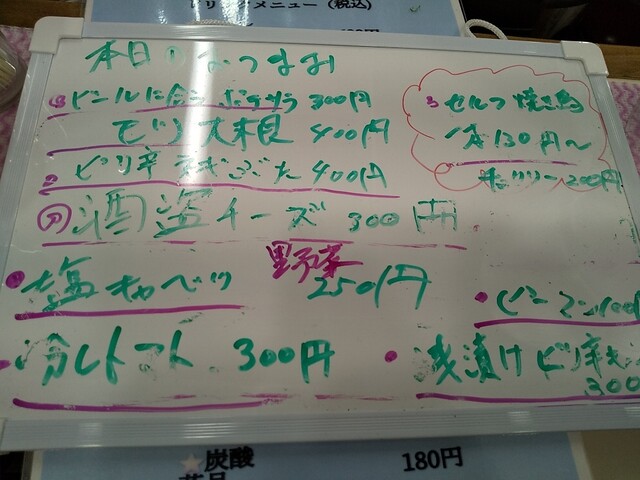 メニュー(税込)
本日のおつまみ
ビールに合う 300円
モツ大根 400円
ピリ辛ネギぶた 400円
酒盗チーズ 300円
セルフ焼き鳥
一本130円〜
チュリソー200円
野菜
塩キャベツ 250円
ピーマン100
冷しトマト 300円
浅漬けピリ辛
300
炭酸 180円